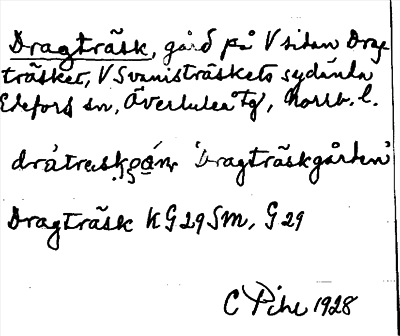 Dragträsk, gård på V sidan Drag-
träsket, V Svanisträskets sydända
Edefors sn, Överluleå tg, Norrb. l.
drátraskgǫ́ɳ 'Dragträskgården'
Dragträsk KG29SM, G29
C Pihl 1928